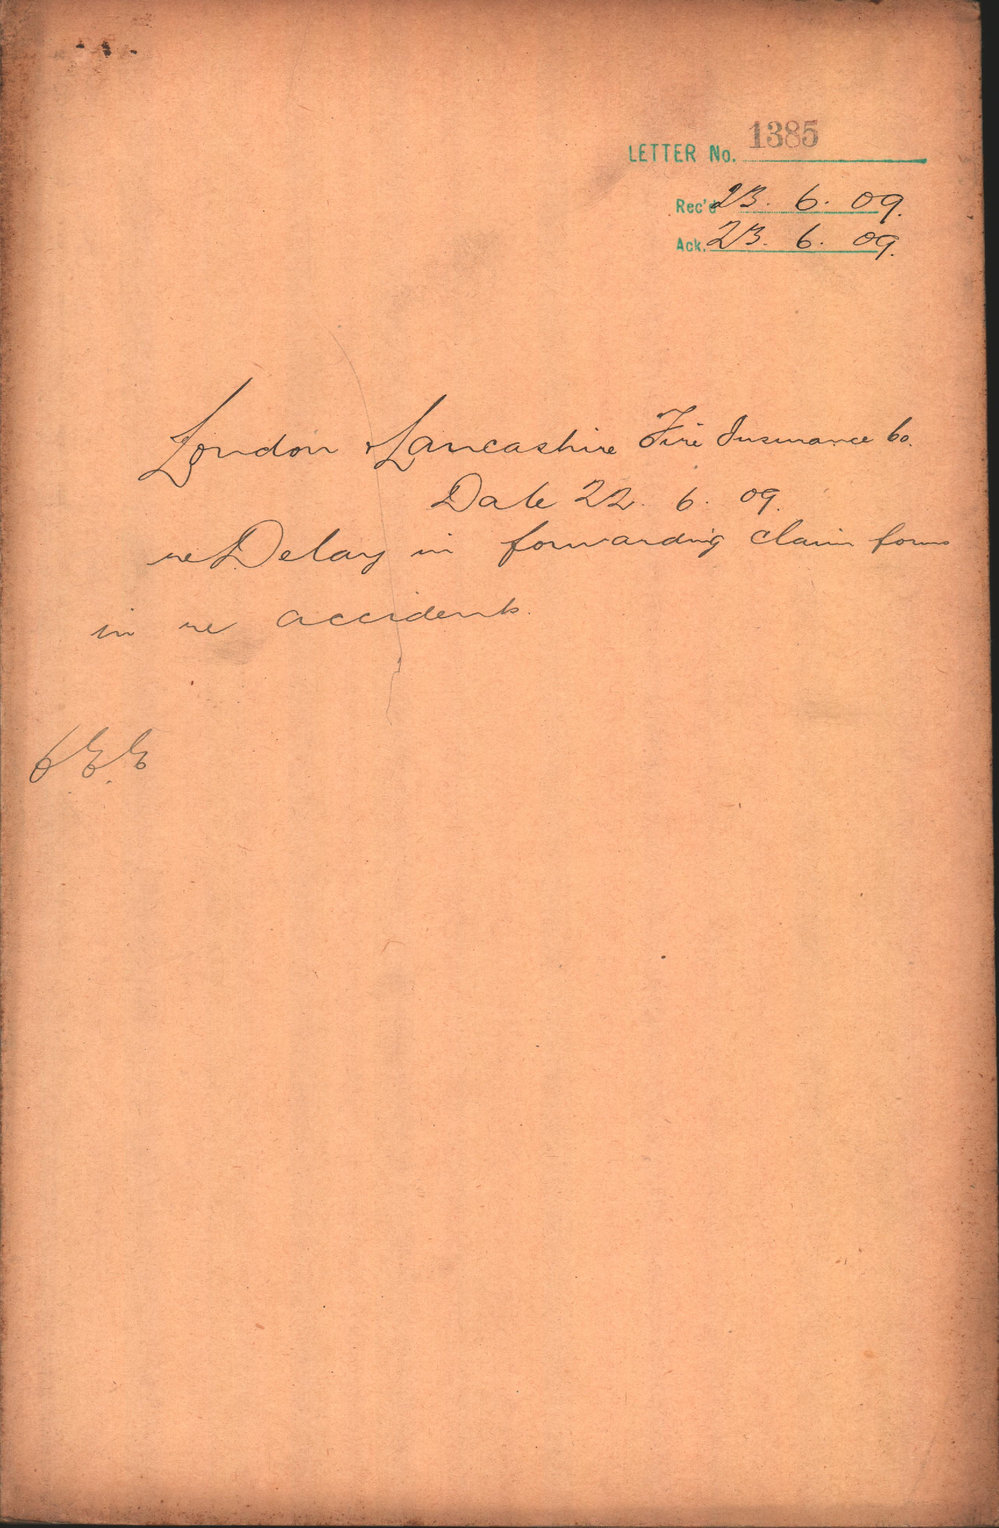 LETTER No. 1385
Rec'd 23. 6. 09.
Ack. 23. 6. 09.
London & Lancashire Fire Insurance Co.
Date 22. 6. 09.
re Delay in forwarding claim forms
in re accidents.